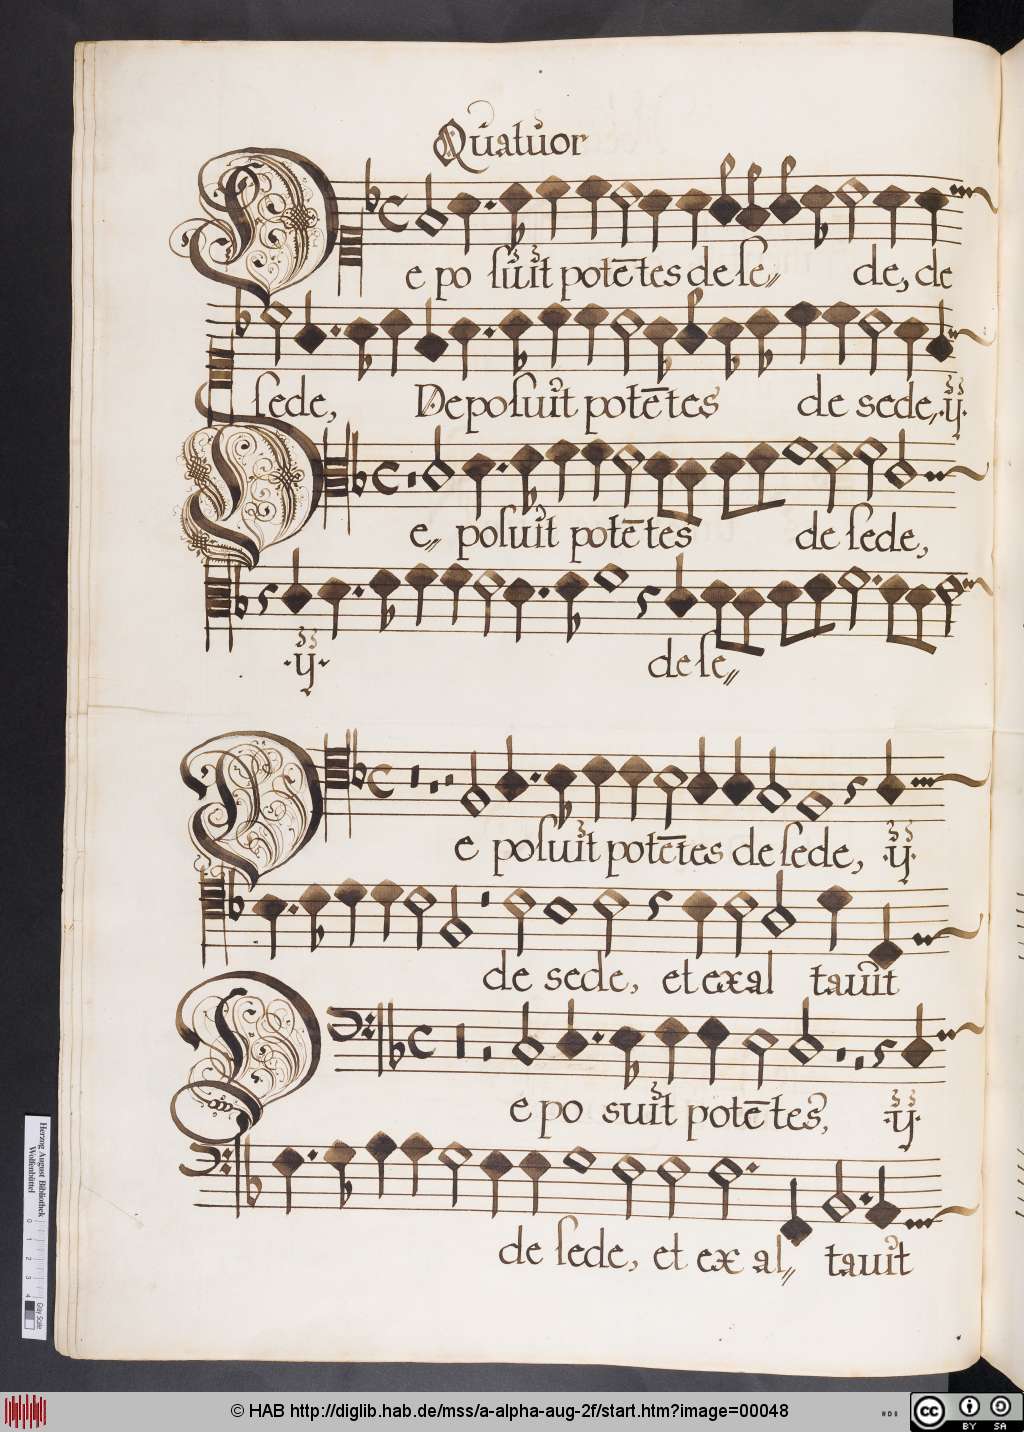 Quatuor
De po suit potētes de se〃 de, de
sede, Deposuit potētes de sede, ·ij·
De〃 posuit potētes de sede,
·ij· de se〃
De posuit potētes de sede, ·ij·
de sede, et exal tauit
De po suit potētes, ·ij·
de sede, et ex al〃 tauit
Herzog August Bibliothek
Wolfenbüttel
0 1 2 3 4
Gray Scale
© HAB http://diglib.hab.de/mss/a-alpha-aug-2f/start.htm?image=00048
cc BY SA